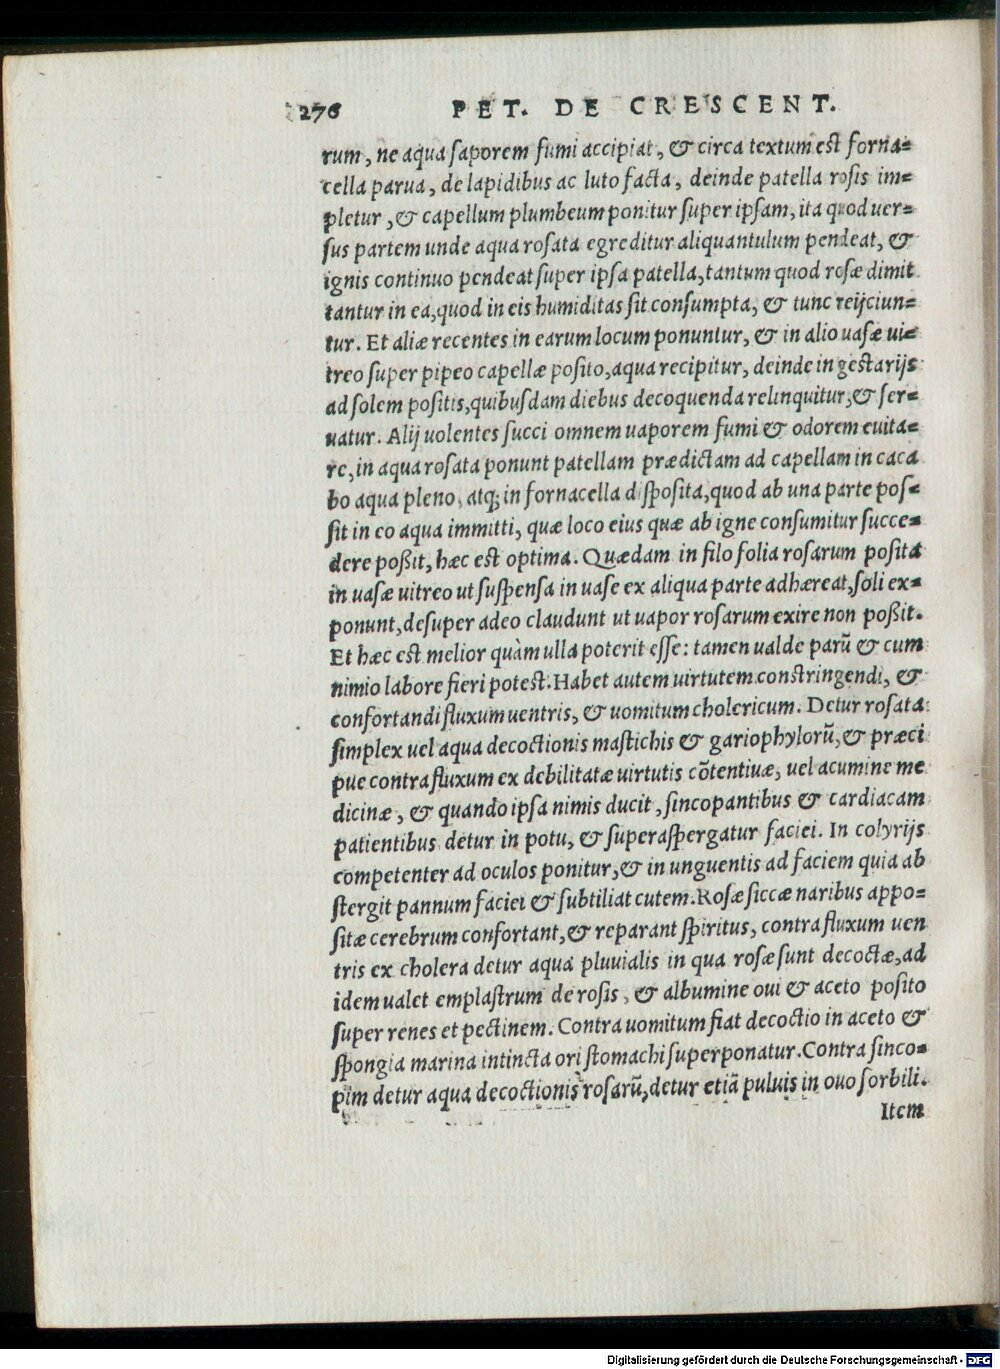 276 PET. DE CRESCENT.
rum, ne aqua ſaporem fumi accipiat, & circa textum est forna=
cella parua, de lapidibus ac luto facta, deinde patella rosis im=
pletur, & capellum plumbeum ponitur ſuper ipſam, ita quod uer=
ſus partem unde aqua roſata egreditur aliquantulum pendeat, &
ignis continuo pendeat ſuper ipſa patella, tantum quod roſæ dimit
tantur in ea, quod in eis humiditas ſit conſumpta, & tunc reijciun=
tur. Et aliæ recentes in earum locum ponuntur, & in alio uaſæ ui=
treo ſuper pipeo capellæ poſito, aqua recipitur, deinde in gestarijs
ad ſolem poſitis, quibuſdam diebus decoquenda relinquitur, & ſer=
uatur. Alij uolentes ſucci omnem uaporem fumi & odorem euita=
re, in aqua roſata ponunt patellam prædictam ad capellam in caca
bo aqua pleno, atq; in fornacella diſpoſita, quod ab una parte poſ=
ſit in eo aqua immitti, quæ loco eius quæ ab igne conſumitur ſucce=
dere poßit, hæc est optima. Quædam in filo folia roſarum poſita
in uaſæ uitreo ut ſuſpenſa in uaſe ex aliqua parte adhæreat, ſoli ex=
ponunt, deſuper adeo claudunt ut uapor roſarum exire non poßit.
Et hæc est melior quàm ulla poterit eſſe: tamen ualde parũ & cum
nimio labore fieri potest. Habet autem uirtutem constringendi, &
confortandi fluxum uentris, & uomitum cholericum. Detur roſata
ſimplex uel aqua decoctionis mastichis & gariophylorũ, & præci
pue contra fluxum ex debilitatæ uirtutis cõtentiuæ, uel acumine me
dicinæ, & quando ipſa nimis ducit, ſincopantibus & cardiacam
patientibus detur in potu, & ſuperaſpergatur faciei. In colyrijs
competenter ad oculos ponitur, & in unguentis ad faciem quia ab
ſtergit pannum faciei & ſubtiliat cutem. Roſæ ſiccæ naribus appo=
ſitæ cerebrum confortant, & reparant ſpiritus, contra fluxum uen
tris ex cholera detur aqua pluuialis in qua roſæ ſunt decoctæ, ad
idem ualet emplaſtrum de roſis, & albumine oui & aceto poſito
ſuper renes et pectinem. Contra uomitum fiat decoctio in aceto &
ſpongia marina intincta ori ſtomachi ſuperponatur. Contra ſinco=
pim detur aqua decoctionis roſarũ, detur etiã puluis in ouo ſorbili.
Item
Digitalisierung gefördert durch die Deutsche Forschungsgemeinschaft - DFG